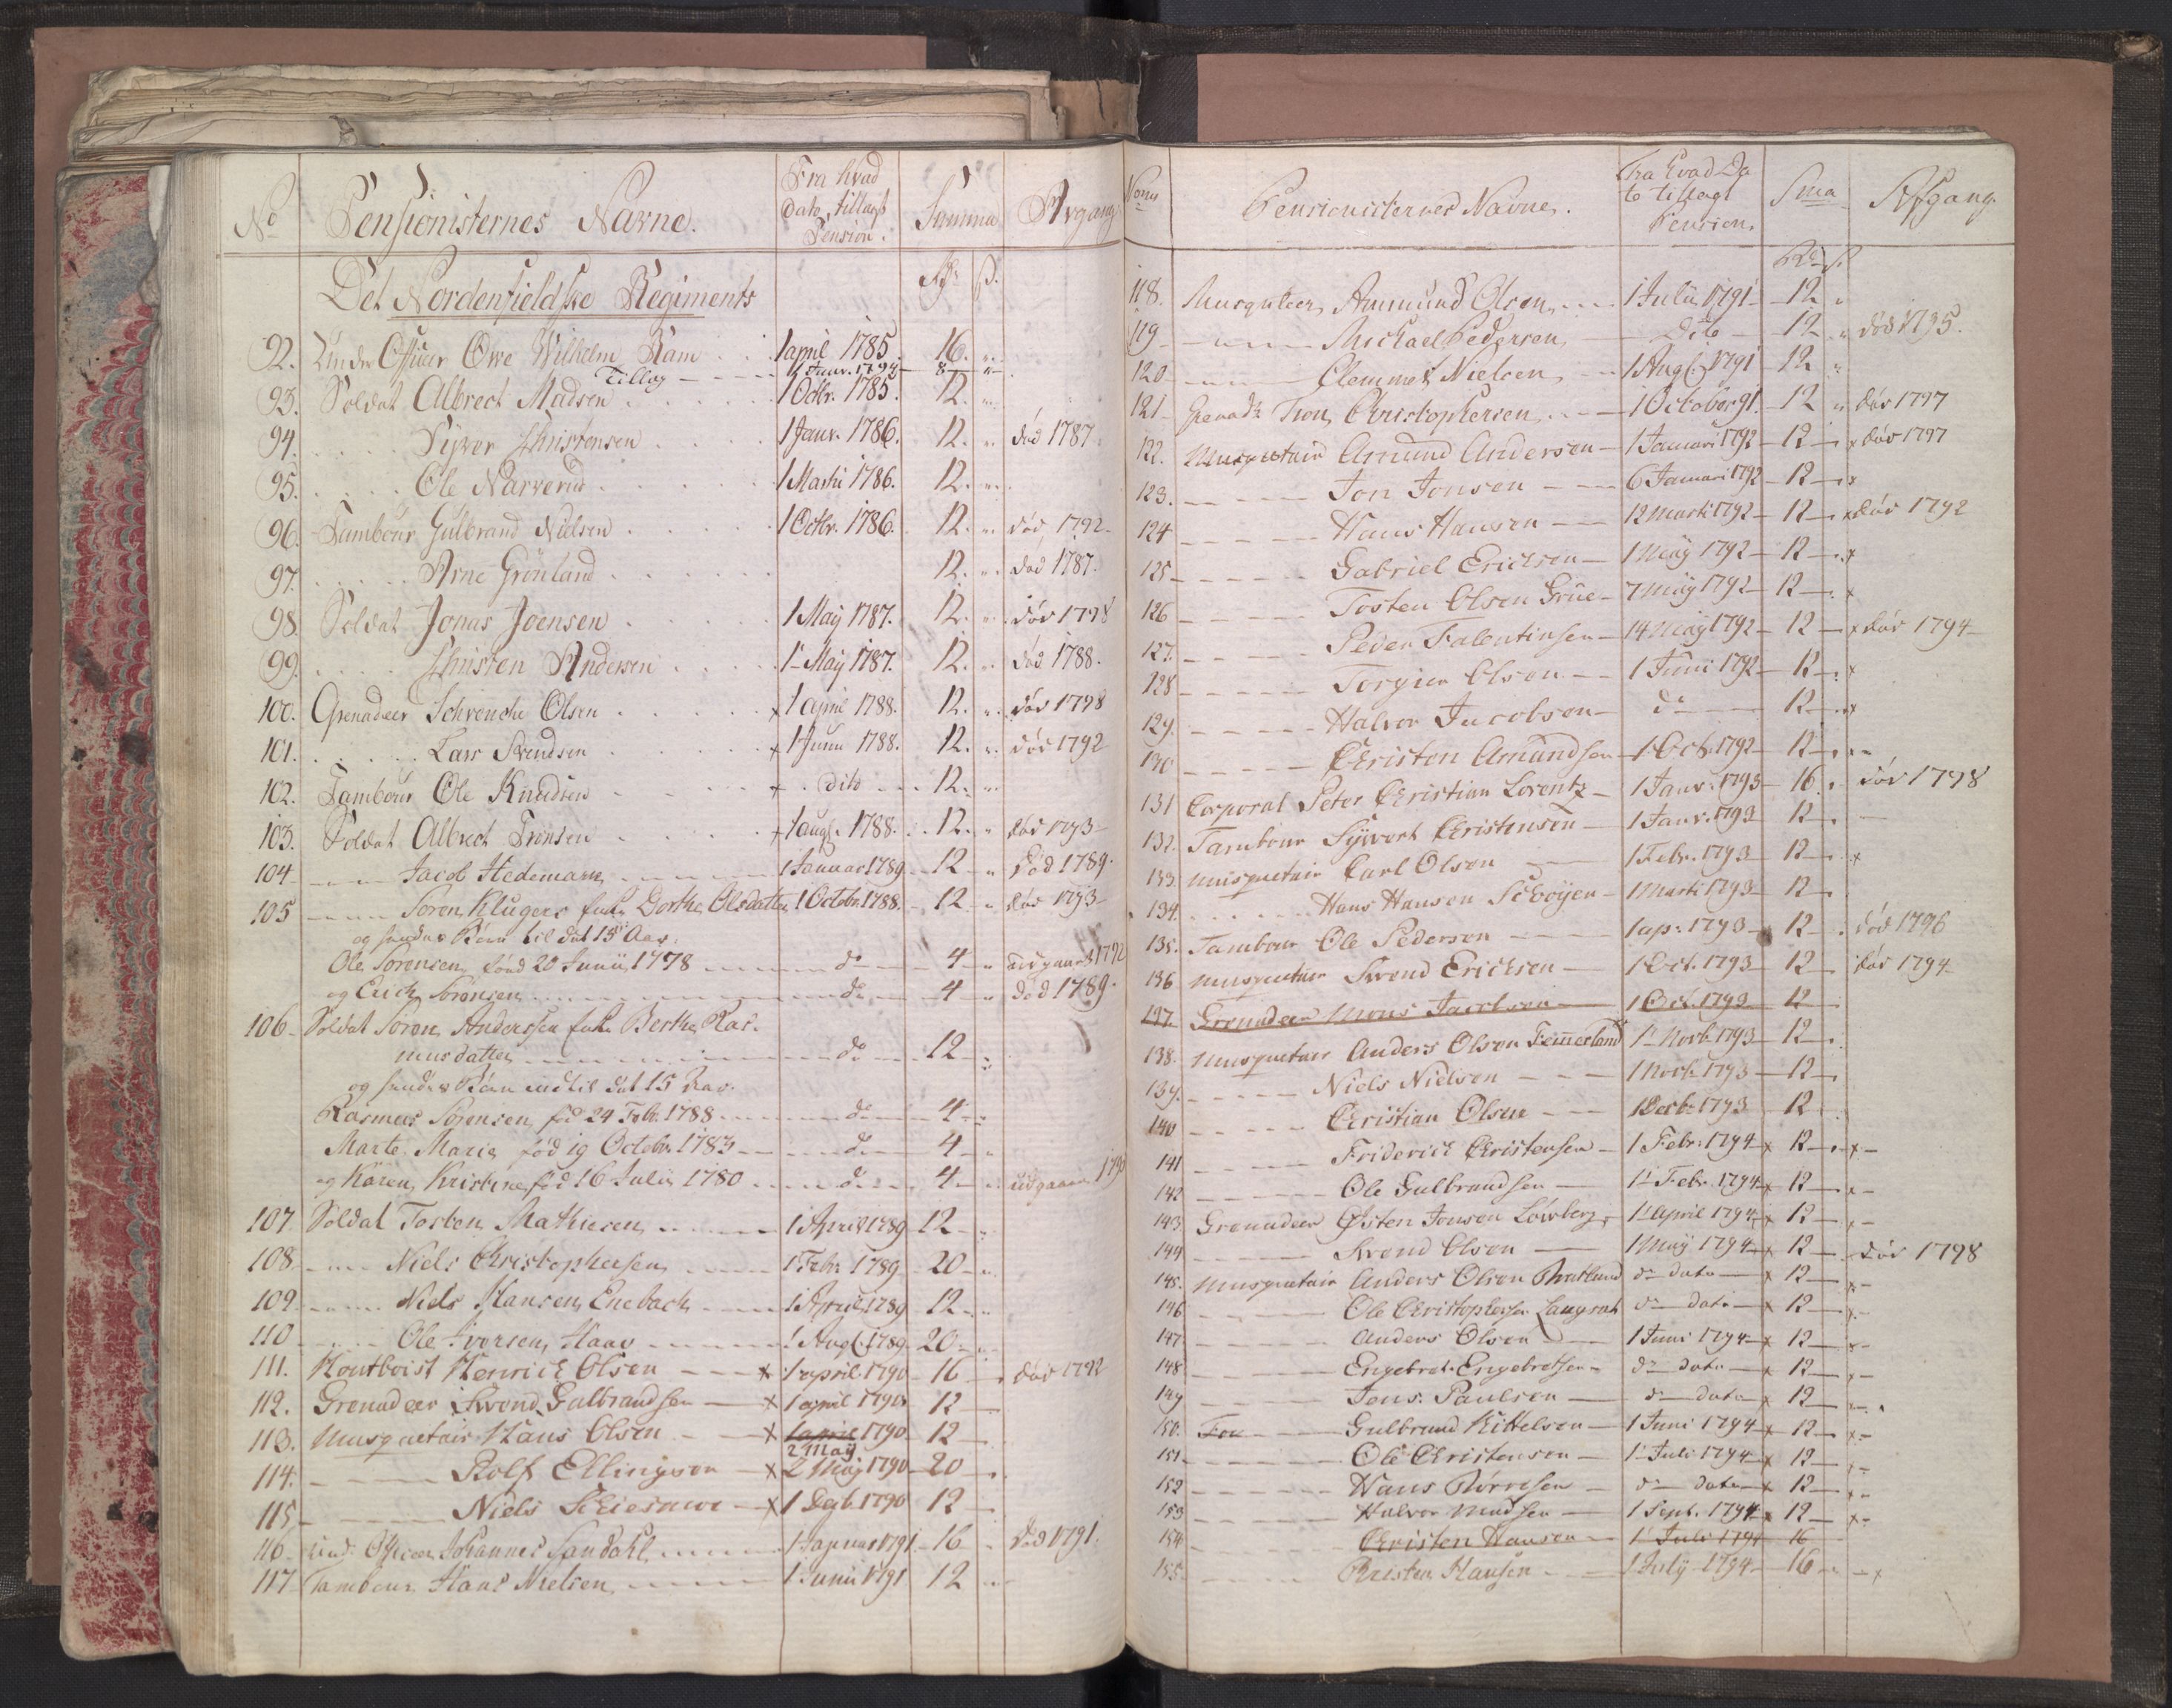 No Pensionisternes Navne. Fra hvad Dato, tillagt Pension. Summa Afgang
Det Nordenfieldske Regiments Rdr ß.
92. Under Officier Owe Wilhelm Ram 1 april 1785. 16. "
Tillæg 1 Janv. 1794 8 "
93. Soldat Albrect Madsen 1 Octbr. 1785. 12. "
94. Syver Christensen 1 Janv. 1786. 12. " død 1787.
95. Ole Narverud 1 Martii 1786. 12. "
96. Tambour Gulbrand Nielsen 1 Octbr. 1786. 12. " død 1792
97. Arne Grönland 12. " død 1787.
98. Soldat Jonas Joensen 1 May 1787. 12. " død 1798
99. Christen Andersen 1 May 1787. 12. " død 1788.
100. Grenadeer Schvencke Olsen x 1 april 1788. 12. " død 1798
101. Lars Svendsen x 1 Junii 1788. 12. " død 1792
102. Tambour Ole Knudsen x dito 12. "
103. Soldat Albrect Tronsen x 1 aug. 1788. 12. " død 1793
104 Jacob Hedemark 1 Januar 1789 12 " Død 1789.
105 Søren Klugers Enke Dorthe Olsdatter 1 Octobr. 1788. 12 " død 1793
og hendes Börn til det 15de Aar.
Ole Sörensen född 20 Junii 1778 do 4 " udgaaed 1792
og Erich Sörensen do 4 " død 1789.
106 Soldat Sören Anderssen Enke Berthe Ras-
musdatter do 12 "
og hendes Börn indtil det 15 Aar.
Rasmus Sörensen föd 24 Febr. 1788 do 4 "
Marte Marie föd 19 Octobr. 1783 do 4 "
og Karen Kristine föd 16 Julii 1780 do 4 " udgaaen 1795
107 Soldat Tosten Mathiesen 1 April 1789 12 "
108 Niels Christophersen 1 Febr. 1789 20 "
109 Niels Hansen Enebach 1 April 1789 12 "
110 Ole Iversen Haav 1 Aug. 1789 20 "
111. Houtboist Henrich Olsen x 1 april 1790 16 død 1792
112. Grenadeer Svend Gulbrandsen x 1 april 1790 12
113. Musquetair Hans Olsen x 1 april 1790 12
2 May
114. Rolf Ellingsen x 2 May 1790 20
115 Niels x 1 Septb. 1790 12
116 Und. Officier Johannes Sandahl 1 Januar 1791 16 Død 1791.
117 Tambour Hans Nielsen 1 Junii 1791 12
Nom Pensionisternes Navne. Fra hvad Da-
to tillagt
Pension. Sma Afgang.
Rd ß
118. Musqueteer Ammund Olsen 1 Julii 1791 12 "
119 Michael Pedersen dito 12 " død 1795.
120 Clemmet Nielsen 1 Aug. 1791 12 "
121 Grenadr Tron Christophersen 1 October 91. 12 " død 1797
122. Musquetair Amund Andersen 1 Januari 1792 12 x død 1797
123. Jon Jonsen 6 Januari 1792 12 x
124 Hans Hansen 12 Marti 1792 12 x død 1792
125 Gabriel Ericksen 1 May 1792 12 x
126 Tosten Olsen Grue 7 May 1792 12 x
127. Peder Falentinsen 14 May 1792 12 x død 1794
128 Torgier Olsen 1 Juni 1792 12 x
129. Halvor Jacobsen do 12 x
130 Christen Amundsen 1 Oct. 1792 12
131 Corporal Peter Christian Lorentz 1 Janv. 1793 16 død 1798
132. Tambour Syvert Christensen 1 Janv. 1793 12
133. Musquetair Carl Olsen 1 Febr. 1793 12 x
134. Hans Hansen 1 Marti 1793 12
135. Tambour Ole Pedersen 1 ap: 1793 12 død 1796
136 Musquetair Svend Ericksen 1 Oct. 1793 12 død 1794
137. Grenadeer Mons Jacobsen 1 Oct. 1793 12
138. Musquetair Anders Olsen 1 Novb. 1793 12
139. Niels Nielsen 1 Novb. 1793 12
140 Christian Olsen 1 Decbr. 1793 12
141 Friderich Christensen 1 Febr. 1794 x 12 x
142 Ole Gulbrandsen 1 Febr. 1794 x 12
143 Grenadeer Østen Jonsen Lövberg 1 April 1794 x 12
144 Svend Olsen 1 May 1794 x 12 død 1798
145. Musquetair Anders Olsen do dato x 12
146 Ole Christophersen do dato x 12
147 Anders Olsen 1 Juni 1794 x 12
148 Engebret Engebretsen do dato x 12
149 Jens Paulsen do dato x 12
150. Gulbrand Kittelsen 1 Juni 1794 x 12 x
151. Ole Christensen 1 Juli 1794 x 12
152 Hans do dato x 12
153 Halvor Madsen 1 Sept. 1794 x 12 x
154 Christen Hansen 1 Juli 1794 16
155. Christen Hansen 1 July 1794 16 x